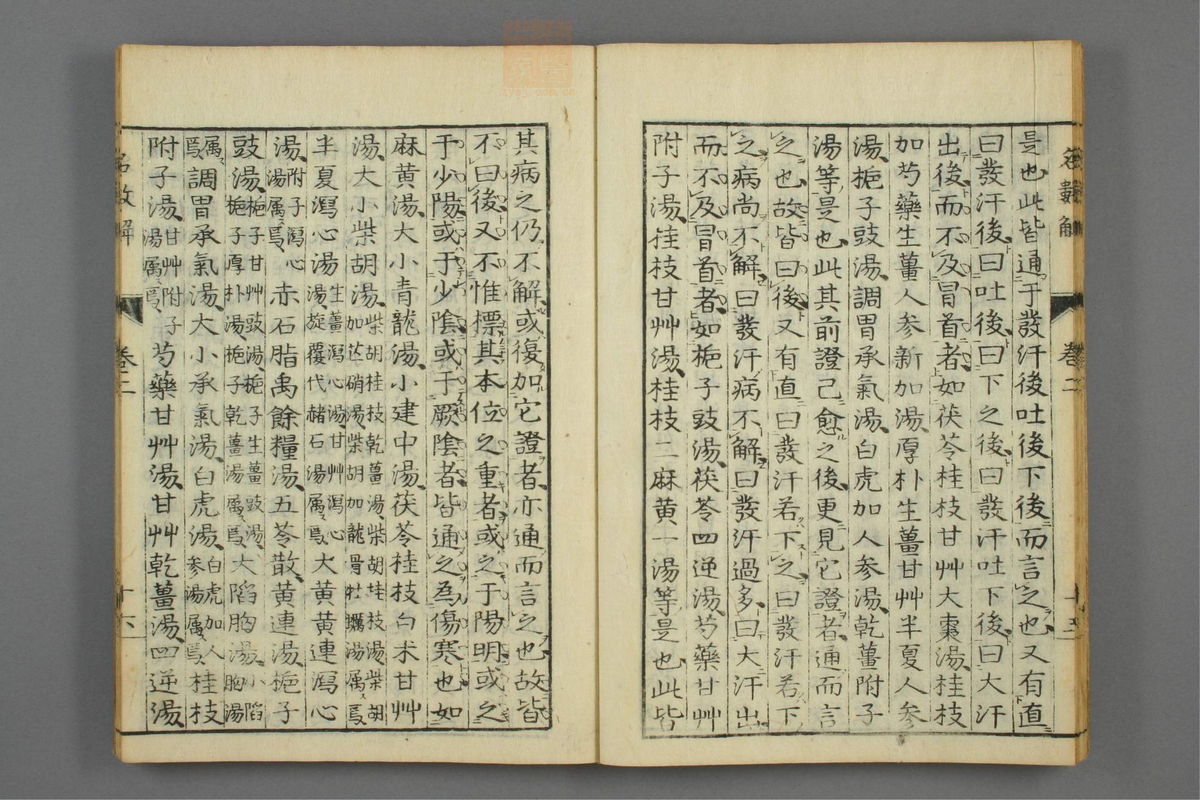 是也此皆通于發汗後吐後下後而言之也又有直
曰發汗後曰吐後曰下之後曰發汗吐下後曰大汗
出後而不及冒首者如茯苓桂枝甘艸大棗湯桂枝
加芍藥生薑人參新加湯厚朴生薑甘艸半夏人參
湯梔子豉湯調胃承氣湯白虎加人參湯乾薑附子
湯等是也此其前證已愈之後更見它證者通而言
之也故皆曰後又有直曰發汗若下之曰發汗若下
之病尚不解曰發汗病不解曰發汗過多曰大汗出
而不及冒首者如梔子豉湯茯苓四逆湯芍藥甘艸
附子湯桂枝甘艸湯桂枝二麻黄一湯等是也此皆
卷二
其病之仍不解或復加它證者亦通而言之也故皆
不曰後又不惟標其本位之重者或之于陽明或之
于少陽或于少陰或于厥陰者皆通之為傷寒也如
麻黄湯大小青龍湯小建中湯茯苓桂枝白朮甘艸
湯大小柴胡湯柴胡桂枝乾薑湯柴胡桂枝湯柴胡加芒硝湯柴胡加龍骨牡蠣湯屬焉
半夏瀉心湯生薑瀉心湯甘艸瀉心湯旋覆代赭石湯屬焉大黄黄連瀉心
湯附子瀉心湯屬焉赤石脂禹餘糧湯五苓散黄連湯梔子
豉湯梔子甘艸豉湯梔子生薑豉湯梔子厚朴湯梔子乾薑湯屬焉大陷胸湯小陷胸湯
屬焉調胃承氣湯大小承氣湯白虎湯白虎加人參湯屬焉桂枝
附子湯甘艸附子湯屬焉芍藥甘艸湯甘艸乾薑湯四逆湯
卷二
十六